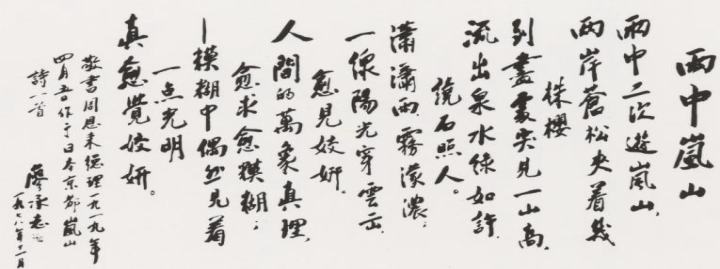 雨中嵐山
雨中二次遊嵐山，
兩岸蒼松夾着幾
株櫻
到盡處突見一山高，
流出泉水綠如許，
繞石照人。
瀟瀟雨，霧濛濃；
一線陽光穿雲出，
愈見姣妍。
人間的萬象真理，
愈求愈模糊；
—模糊中偶然見着
一点光明
真愈覺姣妍。
敬書周恩来總理一九一九年
四月五日作于日本京都嵐山
詩一首
廖承志
一九七八年十一月